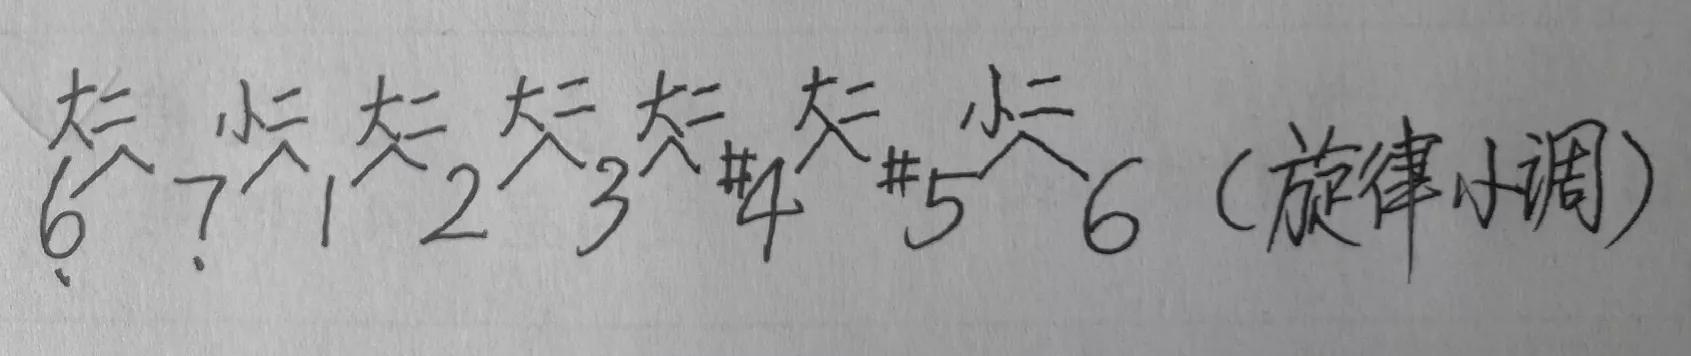 大二 小二 大二 大二 大二 大二 小二
6̣ 7̣ 1 2 3 #4 #5 6 (旋律小调)